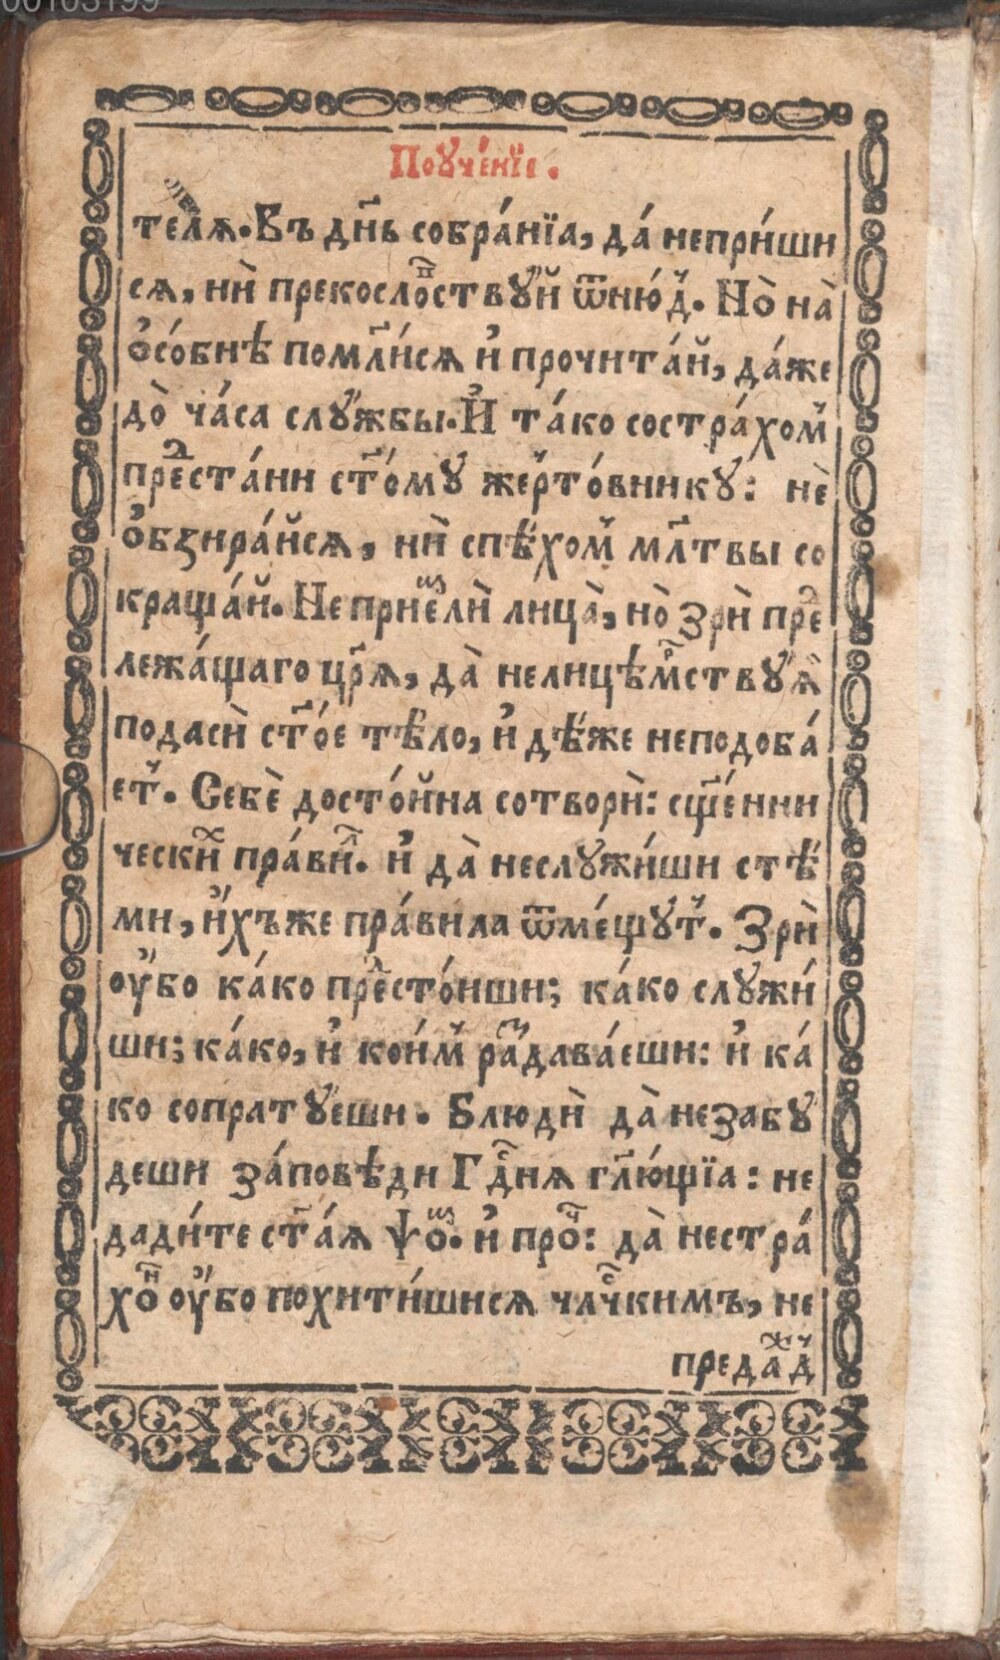 00103199
Поꙋче́нїе.
телѧ. Въ дн҃ь собра́нїа, да́ непри́ши
сѧ, нѝ прекослоⷭ҇ствꙋ́й ѿню́дⷣ. Но̀ на̀
ѻ҆со́бнѣ помл҃и́сѧ и҆ прочита́й, да́же
до̀ ча́са слꙋ́жбы. И҆ та́ко состра́хом̾
преⷣста́ни ст҃о́мꙋ же́ртовникꙋ̀: нѐ
ѻ҆бзира́йсѧ, нѝ спѣ́хом̾ мл҃твы со
краща́й. Не прїеⷨлѝ лица̀, но̀ зрѝ преⷣ
лежа́щаго цр҃ѧ, да̀ нелицѣмⷬ҇ствꙋѧ̀
подасѝ ст҃о́е тѣ́ло, и҆дѣ́же неподоба́
ет̾. Себѐ досто́йна сотворѝ: сщ҃е́нни
ческиⷯ пра́виⷧ҇. и҆ да̀ неслꙋжи́ши стѣ́
ми, и҆́хъже пра́вила ѿме́щꙋт̾. Зрѝ
ᲂу҆́бо ка́ко преⷣсто́иши; ка́ко слꙋжи́
ши; ка́ко, и҆ кои́м̾ раⷥдава́еши: и҆ ка́
ко сопратꙋ́еши. Блюдѝ да̀ незабꙋ́
деши за́повѣди Гдⷭ҇нѧ гл҃ю́щїа: не
дади́те ст҃а́ѧ ѱоⷨ. и҆ проⷱ҇: да̀ нестра́
хоⷨ ᲂу҆́бо похити́вшисѧ члч҃кимъ, не
предаⷤдⷱ҇